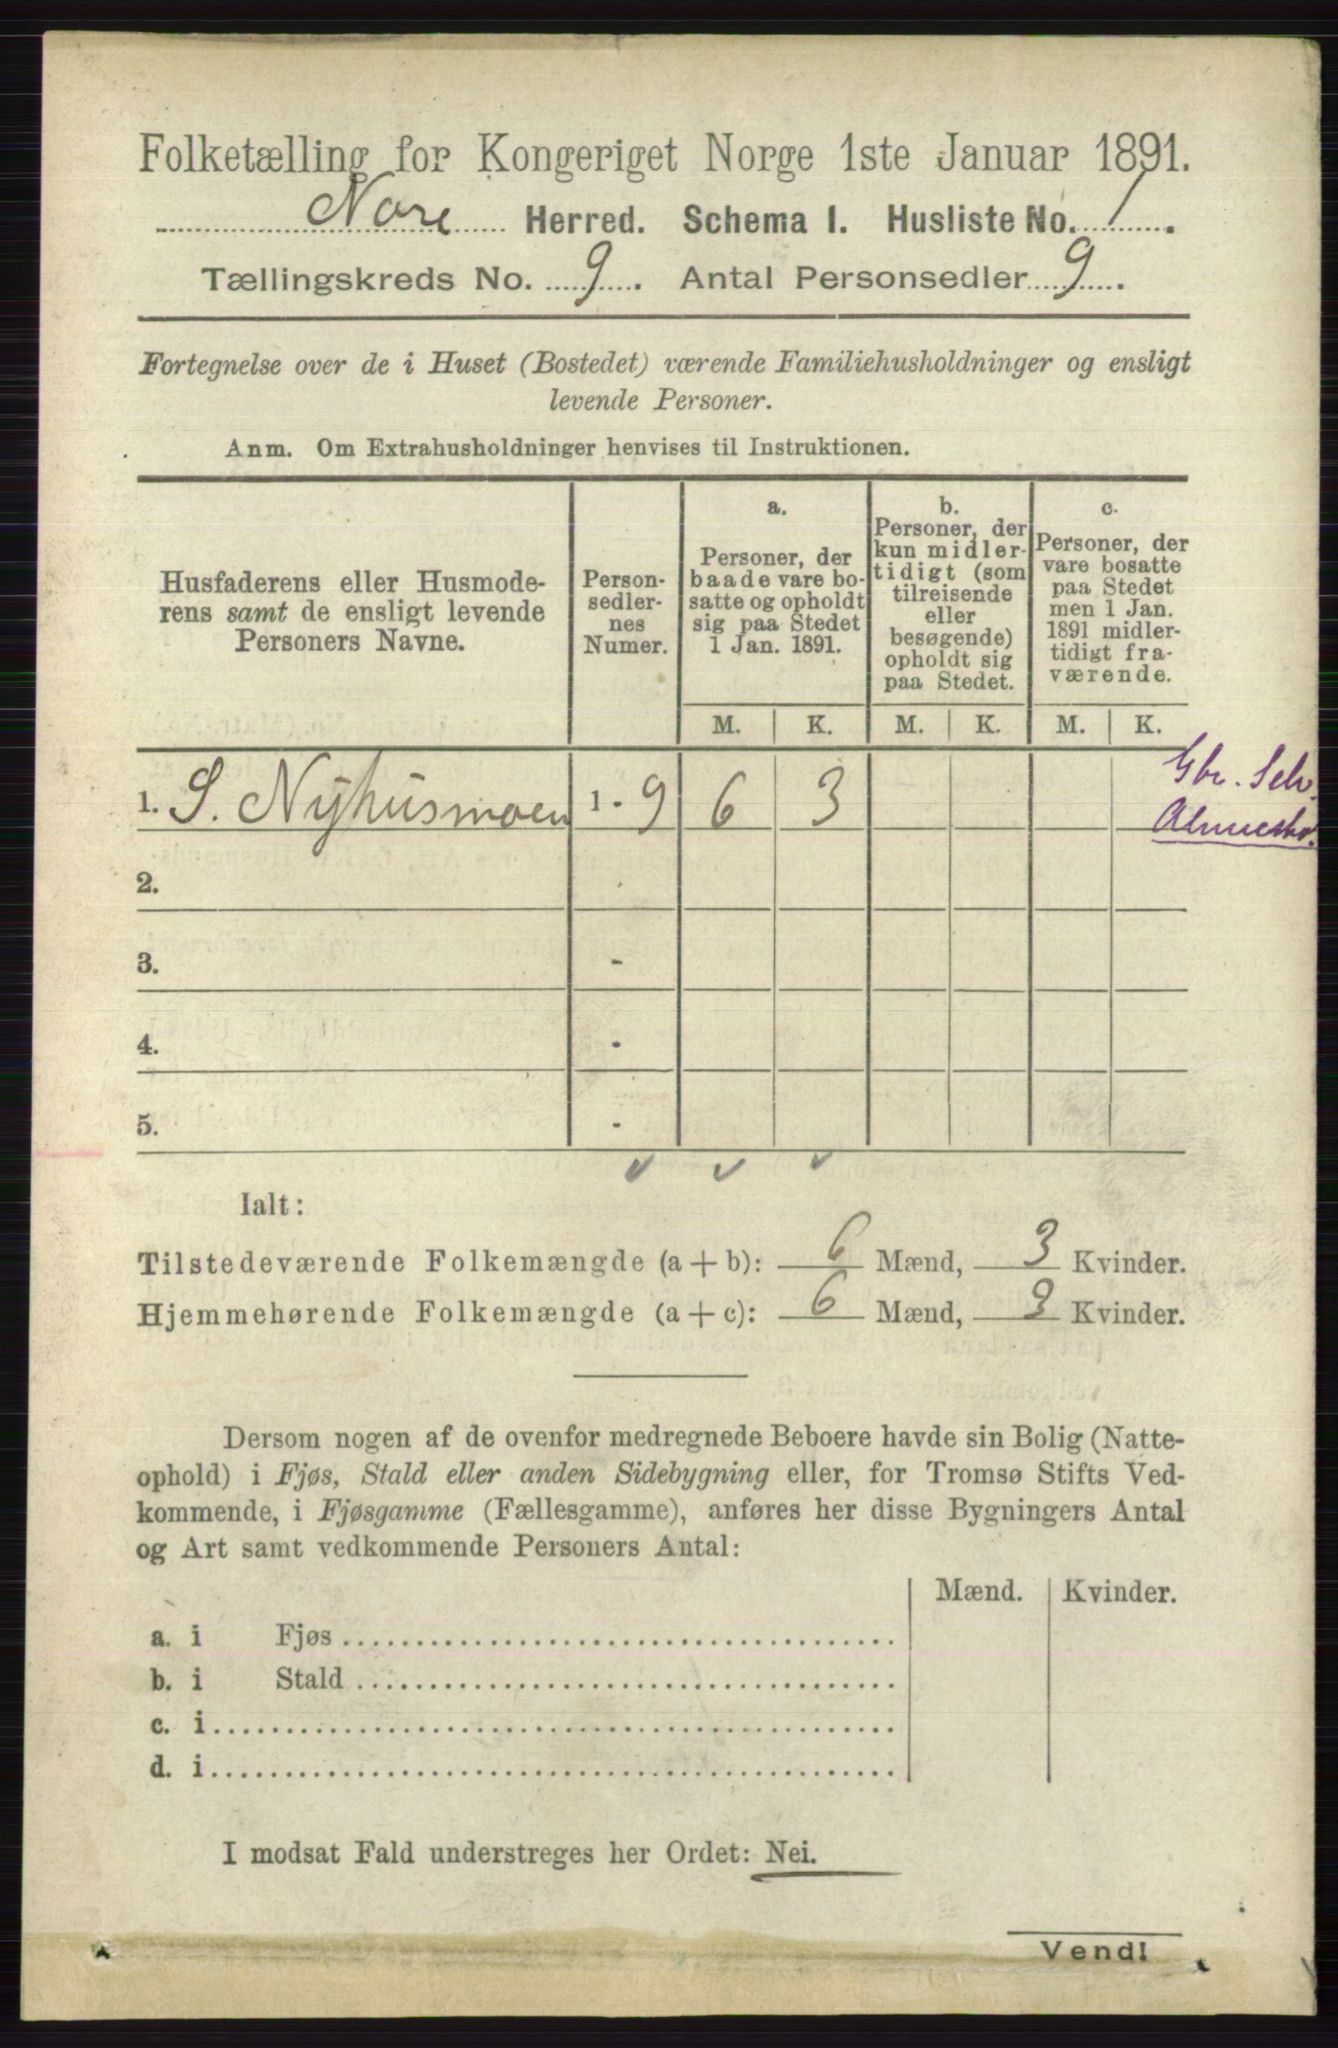 Folketælling for Kongeriget Norge 1ste Januar 1891.
Nore Herred. Schema I. Husliste No. 1.
Tællingskreds No. 9. Antal Personsedler 9.
Fortegnelse over de i Huset (Bostedet) værende Familiehusholdninger og ensligt
levende Personer.
Anm. Om Extrahusholdninger henvises til Instruktionen.
Husfaderens eller Husmode-
rens samt de ensligt levende
Personers Navne.
Person-
sedler-
nes
Numer.
a.
Personer, der
baade vare bo-
satte og opholdt
sig paa Stedet
1 Jan. 1891.
b.
Personer, der
kun midler-
tidigt (som
tilreisende
eller
besøgende)
opholdt sig
paa Stedet.
c.
Personer, der
vare bosatte
paa Stedet
men 1 Jan.
1891 midler-
tidigt fra-
værende.
M. K. M. K. M. K.
1. S. Nyhusmoen 1 - 9 6 3
Gbr. Selv.
2.
3. -
4. -
5. -
Ialt:
Tilstedeværende Folkemængde (a + b): 6 Mænd, 3 Kvinder.
Hjemmehørende Folkemængde (a + c): 6 Mænd, 3 Kvinder.
Dersom nogen af de ovenfor medregnede Beboere havde sin Bolig (Natte-
ophold) i Fjøs, Stald eller anden Sidebygning eller, for Tromsø Stifts Ved-
kommende, i Fjøsgamme (Fællesgamme), anføres her disse Bygningers Antal
og Art samt vedkommende Personers Antal:
Mænd. Kvinder.
a. i Fjøs
b. i Stald
c. i
d. i
I modsat Fald understreges her Ordet: Nei.
Vend!